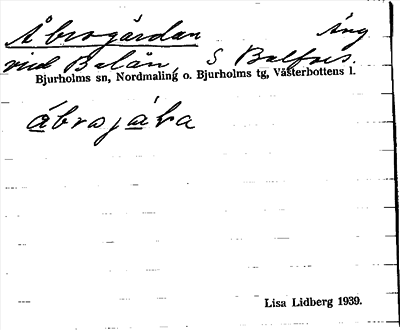 Åbrogärdan Äng
vid Balån, S Balfors.
Bjurholms sn, Nordmaling o. Bjurholms tg, Västerbottens l.
åbrojäka
Lisa Lidberg 1939.